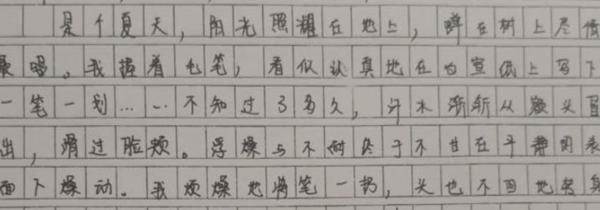 是个夏天，阳光照耀在地上，蝉在树上尽情
歌唱。我握着毛笔，看似认真地在白宣纸上写下
一笔一划……不知过了多久，汗水渐渐从额头冒
出，滑过脸颊。浮燥与不耐终于不甘在平静的表
面下燥动。我烦燥地将笔一扔，头也不回地转身